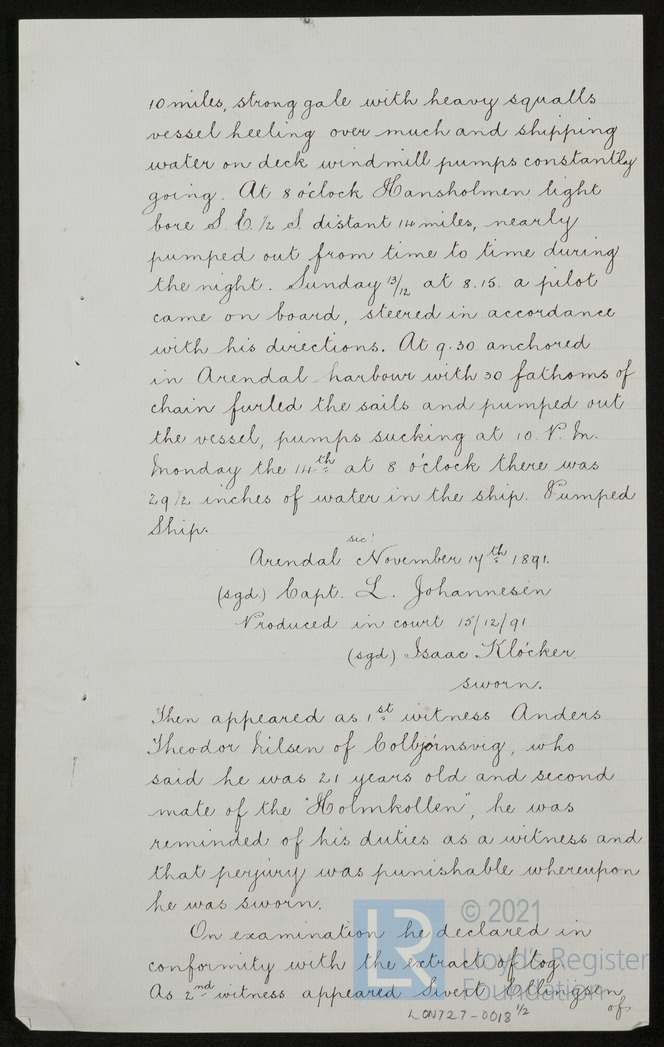 10 miles, strong gale with heavy squalls
vessel heeling over much and shipping
water on deck windmill pumps constantly
going. At 8 o'clock Hansholmen light
bore S. E. 1/2 S. distant 14 miles, nearly
pumped out from time to time during
the night. Sunday 13/12 at 8.15. a pilot
came on board, steered in accordance
with his directions. At 9.30 anchored
in Arendal harbour with 30 fathoms of
chain furled the sails and pumped out
the vessel, pumps sucking at 10 P. M.
Monday the 14th at 8 o'clock there was
29 1/2 inches of water in the ship. Pumped
Ship.
sic!
Arendal November 14th 1891.
(sgd.) Capt. L. Johannesen
Produced in court 15/12/91
(sgd.) Isaac Klócker
sworn.
Then appeared as 1st witness Anders
Theodor Nilsen of Colbjörnsvig, who
said he was 21 years old and second
mate of the "Holmkollen", he was
reminded of his duties as a witness and
that perjury was punishable whereupon
he was sworn.
On examination he declared in
conformity with the extract of log.
As 2nd witness appeared Sivert Ellingsen,
of
LR © 2021
Lloyd's Register
Foundation
LON727-0018 1/2